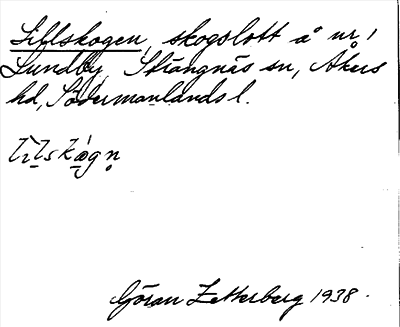 Lillskogen, skogslott å nr 1
Lundby, Strängnäs sn, Åkers
hd, Södermanlands l.
Göran Zetterberg 1938.